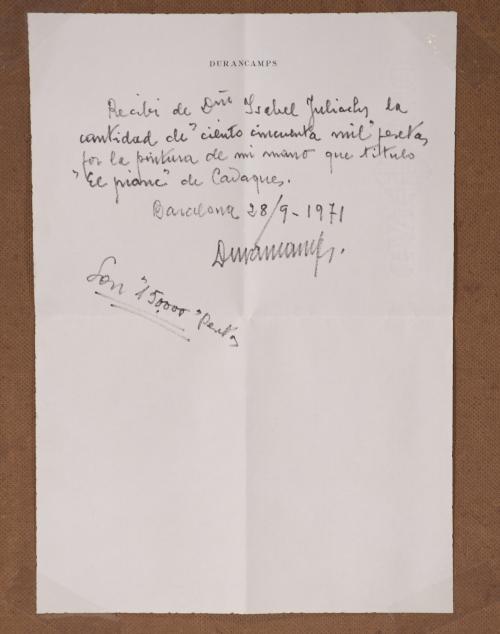 DURANCAMPS
Recibi de Dña Isabel Juliachs la
cantidad de "ciento cincuenta mil" pesetas
por la pintura de mi mano que titulo
"El pianc" de Cadaques.
Barcelona 28/9-1971
Durancamps.
Son "150,000" Pesetas